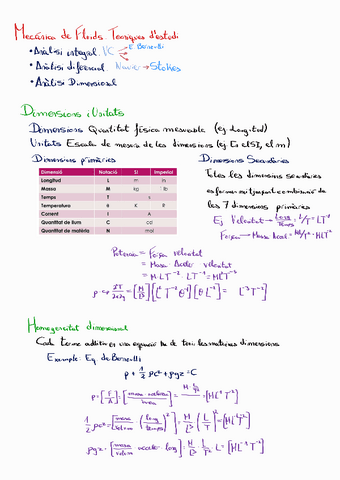 Mecànica de Fluids. Tècniques d'estudi
• Anàlisi integral. VC → E. Bernoulli
• Anàlisi diferencial. Navier → Stokes
• Anàlisi Dimensional
Dimensions i Unitats
Dimensions Quantitat física mesurable (eg Longitud)
Unitats Escala de mesura de les dimensions (eg En el SI, el m)
Dimensions primàries
Dimensió Notació SI Imperial
Longitud L m in
Massa M kg lb
Temps T s
Temperatura θ K R
Corrent I A
Quantitat de llum C cd
Quantitat de matèria N mol
Dimensions Secundàries
Totes les dimensions secundàries
es formen mitjançant combinació de
les 7 dimensions primàries
Eg Velocitat → = L/T = LT⁻¹
Força → Massa Accel = ML/T² = MLT⁻²
Potència = Força velocitat
= Massa Accele velocitat
= M·LT⁻² · LT⁻¹ = ML²T⁻³
Homogeneïtat dimensional
Cada terme additiu en una equació ha de tenir les mateixes dimensions
Example: Eq de Bernoulli
p + 1/2 ρc² + ρgz = C
p = [F/A] =
1/2 ρc² =
ρgz =